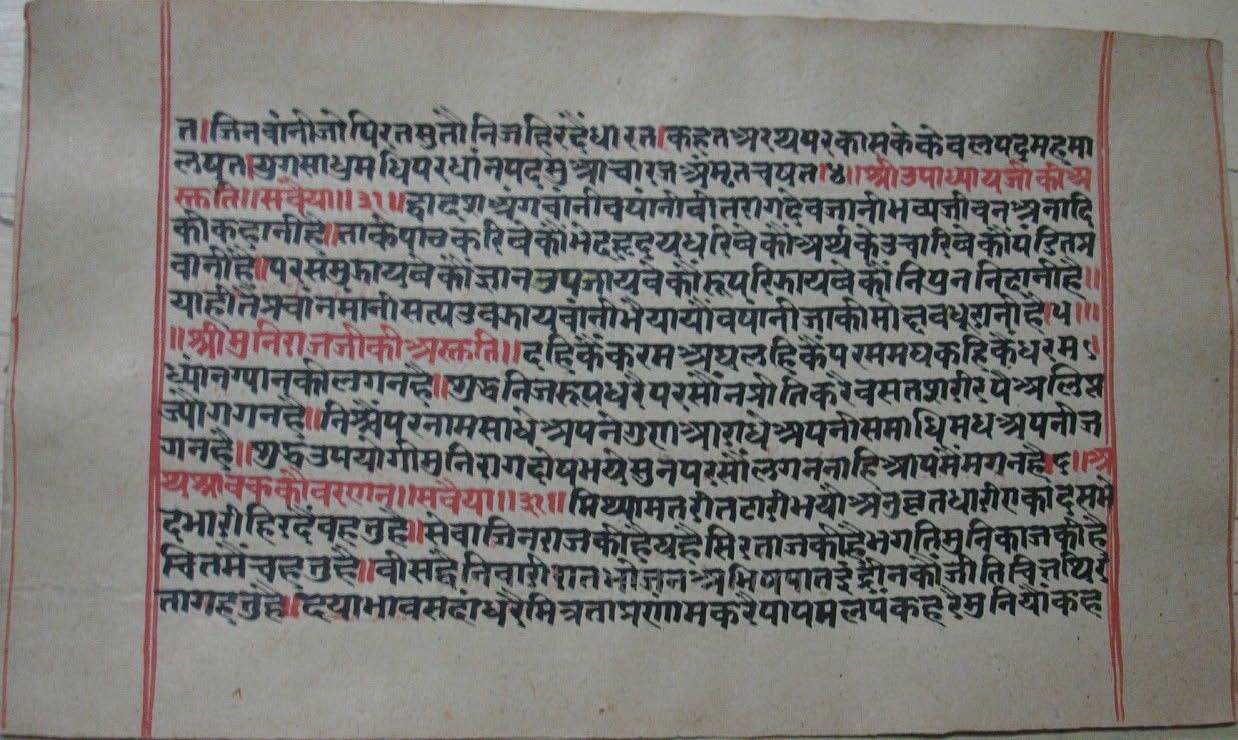 त।जिनवांनीजो षिरतसुतौ निजहिरदैंधारत।कहतअरथपरकासकेकेवलपदमहमा
लषत।युगसाधुमधिपरधांनपदमुआचारजअंमृतचषत।४॥श्रीउपाध्यायजीकीअ
स्तुति॥सवैया॥३१॥द्वादशअंगवांनीवषांनीवीतरागदेवजानीभव्यजीवनअनादि
कीकहानीहै॥ताकेपावकरिवेकौंभेदहृदयधरिवेकौंअर्थकेउचारिवेकौंपंडितप्र
वानीहै॥परसंमुझायवेकौंज्ञानउपजायवेकौंरूपरिझायवेकौंनिपुननिदानीहै॥
याहीतैंप्रवांनमानीसत्यउवझायवांनीभैयायौंवषानीजाकीमोक्षवधूरानीहै।५॥
॥श्रीमुनिराजजीकीअस्तुति॥दहिकैंकरमअघलहिकैंपरममघकढिकैंधरम
ध्यांनग्यानकीलगनहै॥शुद्धनिजरूपधरैपरसौंनप्रीतिकरैवसतशरीरपैअलिप्त
ज्यौंगगनहै॥निश्चैपरनामसाधेअपनेगुणआराधेअपनीसमाधिमधअपनीज
गनहै॥शुद्धउपयोगीमुनिरागदोषभयेसुनपरसौंलगननाहिआपमैंमगनहै।६॥अ
थश्रावककौवरणन॥सवैया॥३१॥मिथ्यामतरीतटारीभयौअनुव्रतधारीएकादसभे
दभारीहिरदैंवहतुहै॥सेवाजिनराजकीहैयहैसिरताजकीहैभगतिमुनिकाजकीहै
चितमैंचहतुहै॥वीसद्वैनिवारीरातभोजनअभिषपातइंद्रीनकौंजीतिचितथिर
तागहतुहै॥दयाभावसदांधरैमित्रताप्रणामकरैपापमलपंकहरैमुनियौंकह